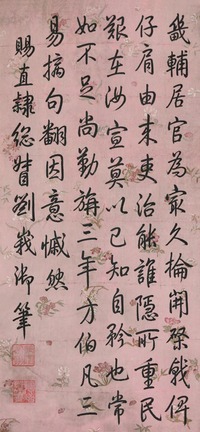 畿輔居官為最久掄開棨戟俾
仔肩由来吏治能誰隱所重民
艱在汝宣莫以已知自矜也常
如不足尚勤旃三年方伯凡三
易摛句翻因意慽然
賜直隸總督劉峩御筆